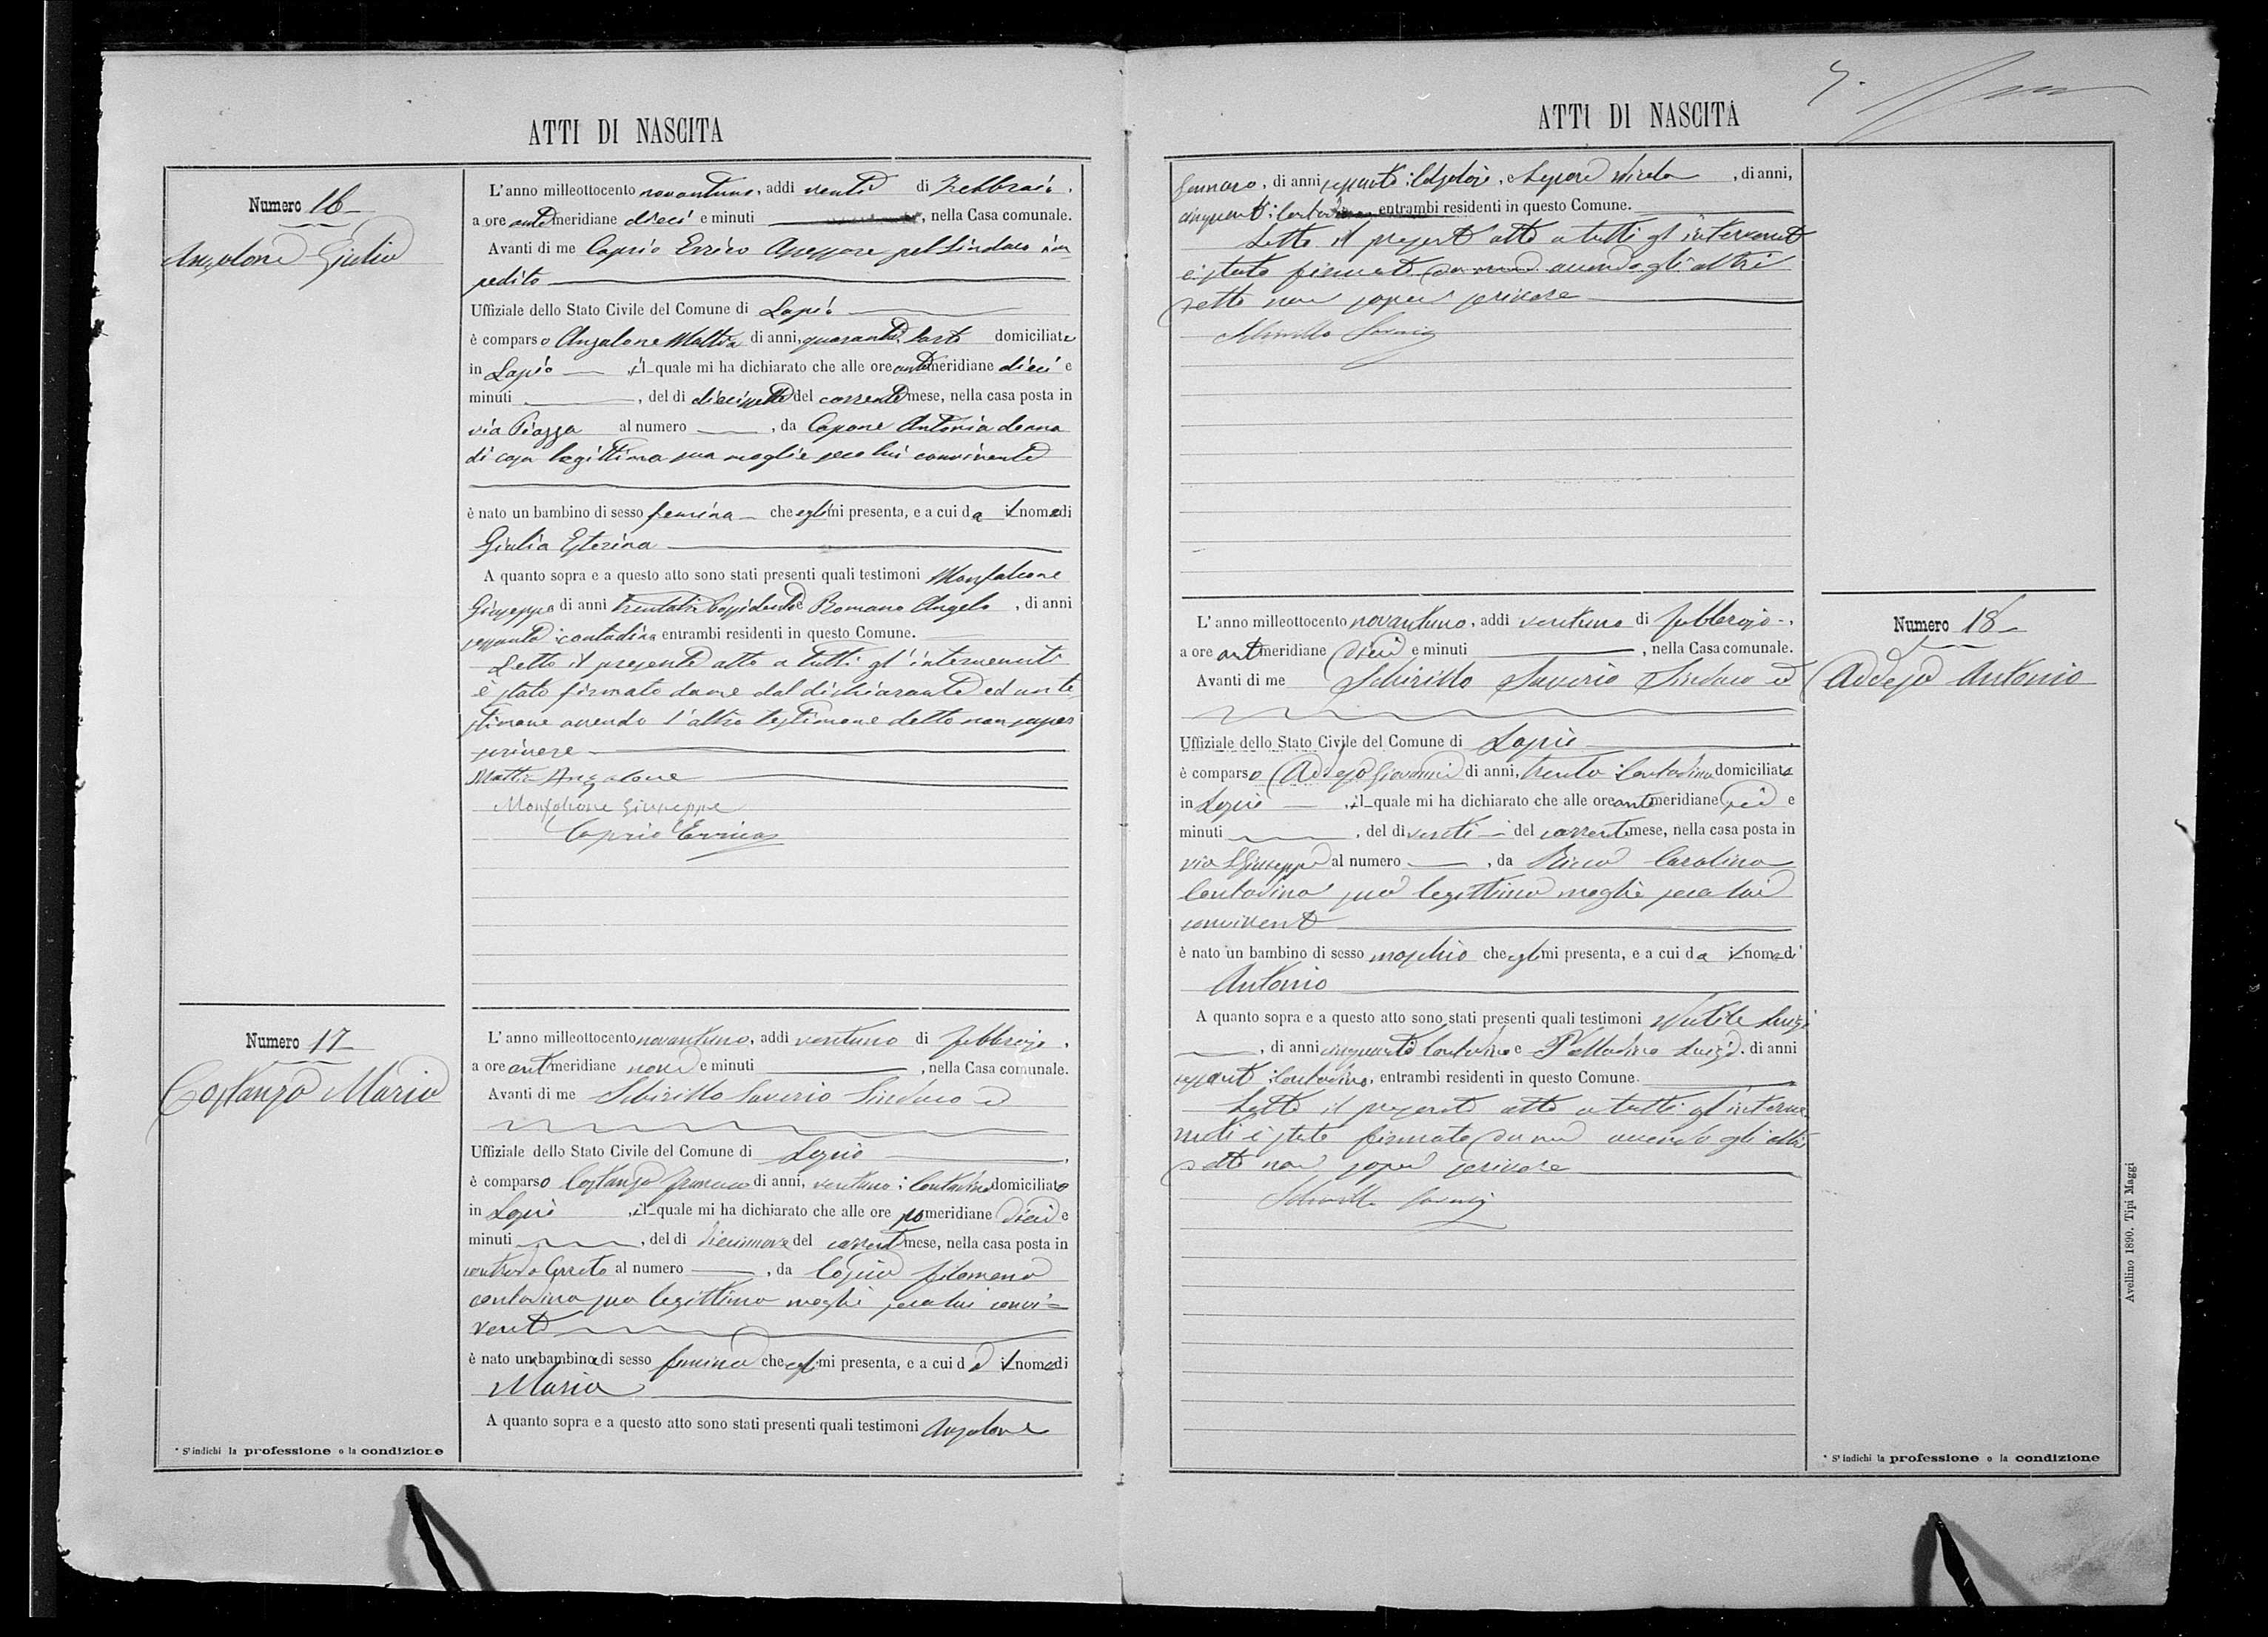 ATTI DI NASCITA
Numero 16
Angelone Giulia
L'anno milleottocento novantuno, addi venti di Febbraio,
a ore antimeridiane dieci e minuti, nella Casa comunale.
Avanti di me Caprio Errico Assessore pel Sindaco im
pedito
Uffiziale dello Stato Civile del Comune di Lapio
è comparso Angelone Mattia di anni, quaranta, sarto domiciliato
in Lapio, il quale mi ha dichiarato che alle ore antimeridiane dieci e
minuti, del dì diecisette del corrente mese, nella casa posta in
via Piazza al numero, da Capone Antonia donna
di casa legittima sua moglie seco lui convivente
è nato un bambino di sesso femina che egli mi presenta, e a cui da il nome di
Giulia Esterina
A quanto sopra e a questo atto sono stati presenti quali testimoni Monfalcone
Giuseppe di anni e Romano Angelo, di anni
sessanta contadino entrambi residenti in questo Comune.
Letto il presente atto a tutti gl'intervenuti
è stato firmato da me dal dichiarante ed un te
stimone avendo l'altro testimone detto non saper
scrivere
Mattia Angelone
Monfalcone Giuseppe
Caprio Errico
Numero 17
Costanzo Maria
L'anno milleottocento novantuno, addi ventuno di febbraio,
a ore antimeridiane nove e minuti, nella Casa comunale.
Avanti di me Schirillo Saverio Sindaco ed
Uffiziale dello Stato Civile del Comune di Lapio,
è comparso Costanzo Francesco di anni, ventuno; Contadino domiciliato
in Lapio, il quale mi ha dichiarato che alle ore pomeridiane dieci e
minuti, del di diecinnove del corrente mese, nella casa posta in
contrada Cerreto al numero, da Filomena
contadina sua legittima moglie seco lui convi=
vente
è nato una bambina di sesso femina che egli mi presenta, e a cui dà il nome di
Maria
A quanto sopra e a questo atto sono stati presenti quali testimoni Angelone
* S'indichi la professione o la condizione
ATTI DI NASCITA
Gennaro, di anni sessanta: Calzolaio, e Lepore, di anni,
cinquanta: Contadino entrambi residenti in questo Comune.
Letto il presente atto a tutti gl'intervenuti
è stato firmato da me avendo gli altri
detto non saper scrivere
Schirillo Saverio
L'anno milleottocento novantuno, addi ventuno di febbraio,
a ore antimeridiane dieci e minuti, nella Casa comunale.
Avanti di me Schirillo Saverio Sindaco ed
Uffiziale dello Stato Civile del Comune di Lapio
è comparso Addeso Giovanni di anni, trenta: Contadino domiciliato
in Lapio, il quale mi ha dichiarato che alle ore antimeridiane sei e
minuti, del di venti del corrente mese, nella casa posta in
via S Giuseppe al numero, da Carolina
Contadina sua legittima moglie seco lui
convivente
è nato un bambino di sesso maschio che egli mi presenta, e a cui da il nome di
Antonio
A quanto sopra e a questo atto sono stati presenti quali testimoni Luigi
, di anni cinquanta Contadino e Palladino Luigi, di anni
sessanta: Contadino, entrambi residenti in questo Comune.
Letto il presente atto a tutti gl'interve
nuti è stato firmato da me avendo gli altri
detto non saper scrivere
Schirillo Saverio
Numero 18
Addeso Antonio
* S'indichi la professione o la condizione
Avellino 1890. Tipi Maggi